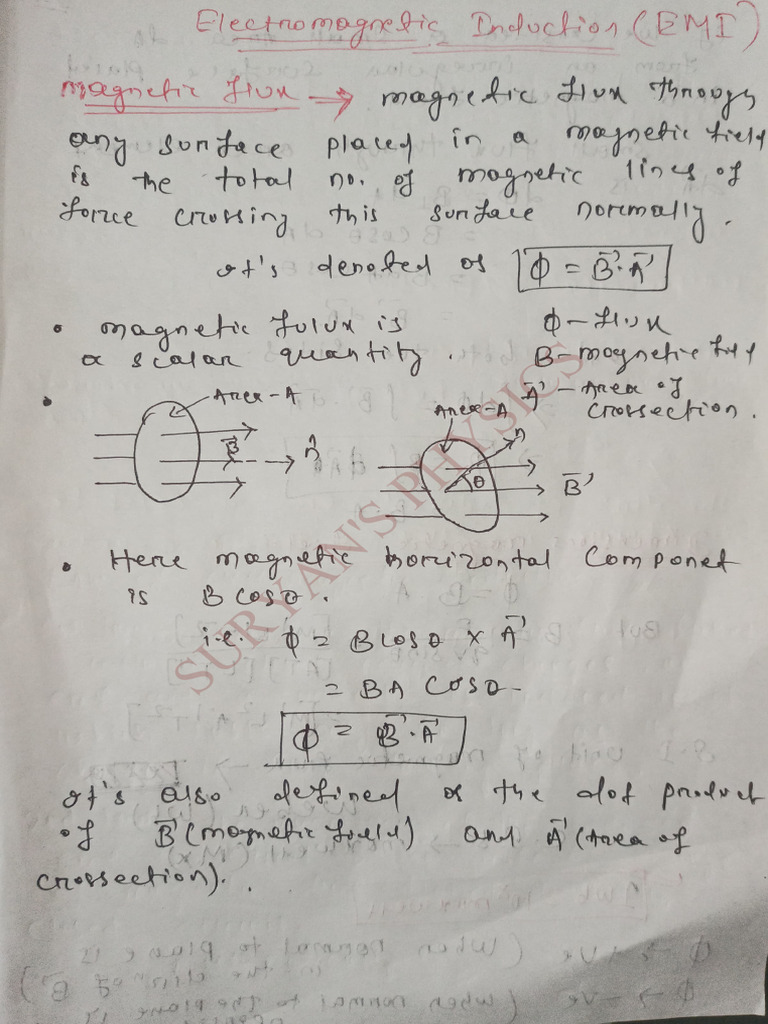 Electromagnetic Induction (EMI)
Magnetic flux → magnetic flux through
any surface placed in a magnetic field
is the total no. of magnetic lines of
force crossing this surface normally.
It's denoted as ϕ = B⃗·A⃗
• Magnetic fulux is
a scalar quantity.
ϕ – flux
B – magnetic field
A⃗ – Area of
crossection.
• Area – A
B⃗
n̂
Area – A
n̂
θ
B⃗
• Here magnetic horizontal componet
is B cosθ.
i.e. ϕ = B cosθ × A⃗
= BA cosθ
ϕ = B⃗·A⃗
It's also defined as the dot product
of B⃗ (magnetic field) and A⃗ (Area of
crossection).
SURYAN'S PHYSICS